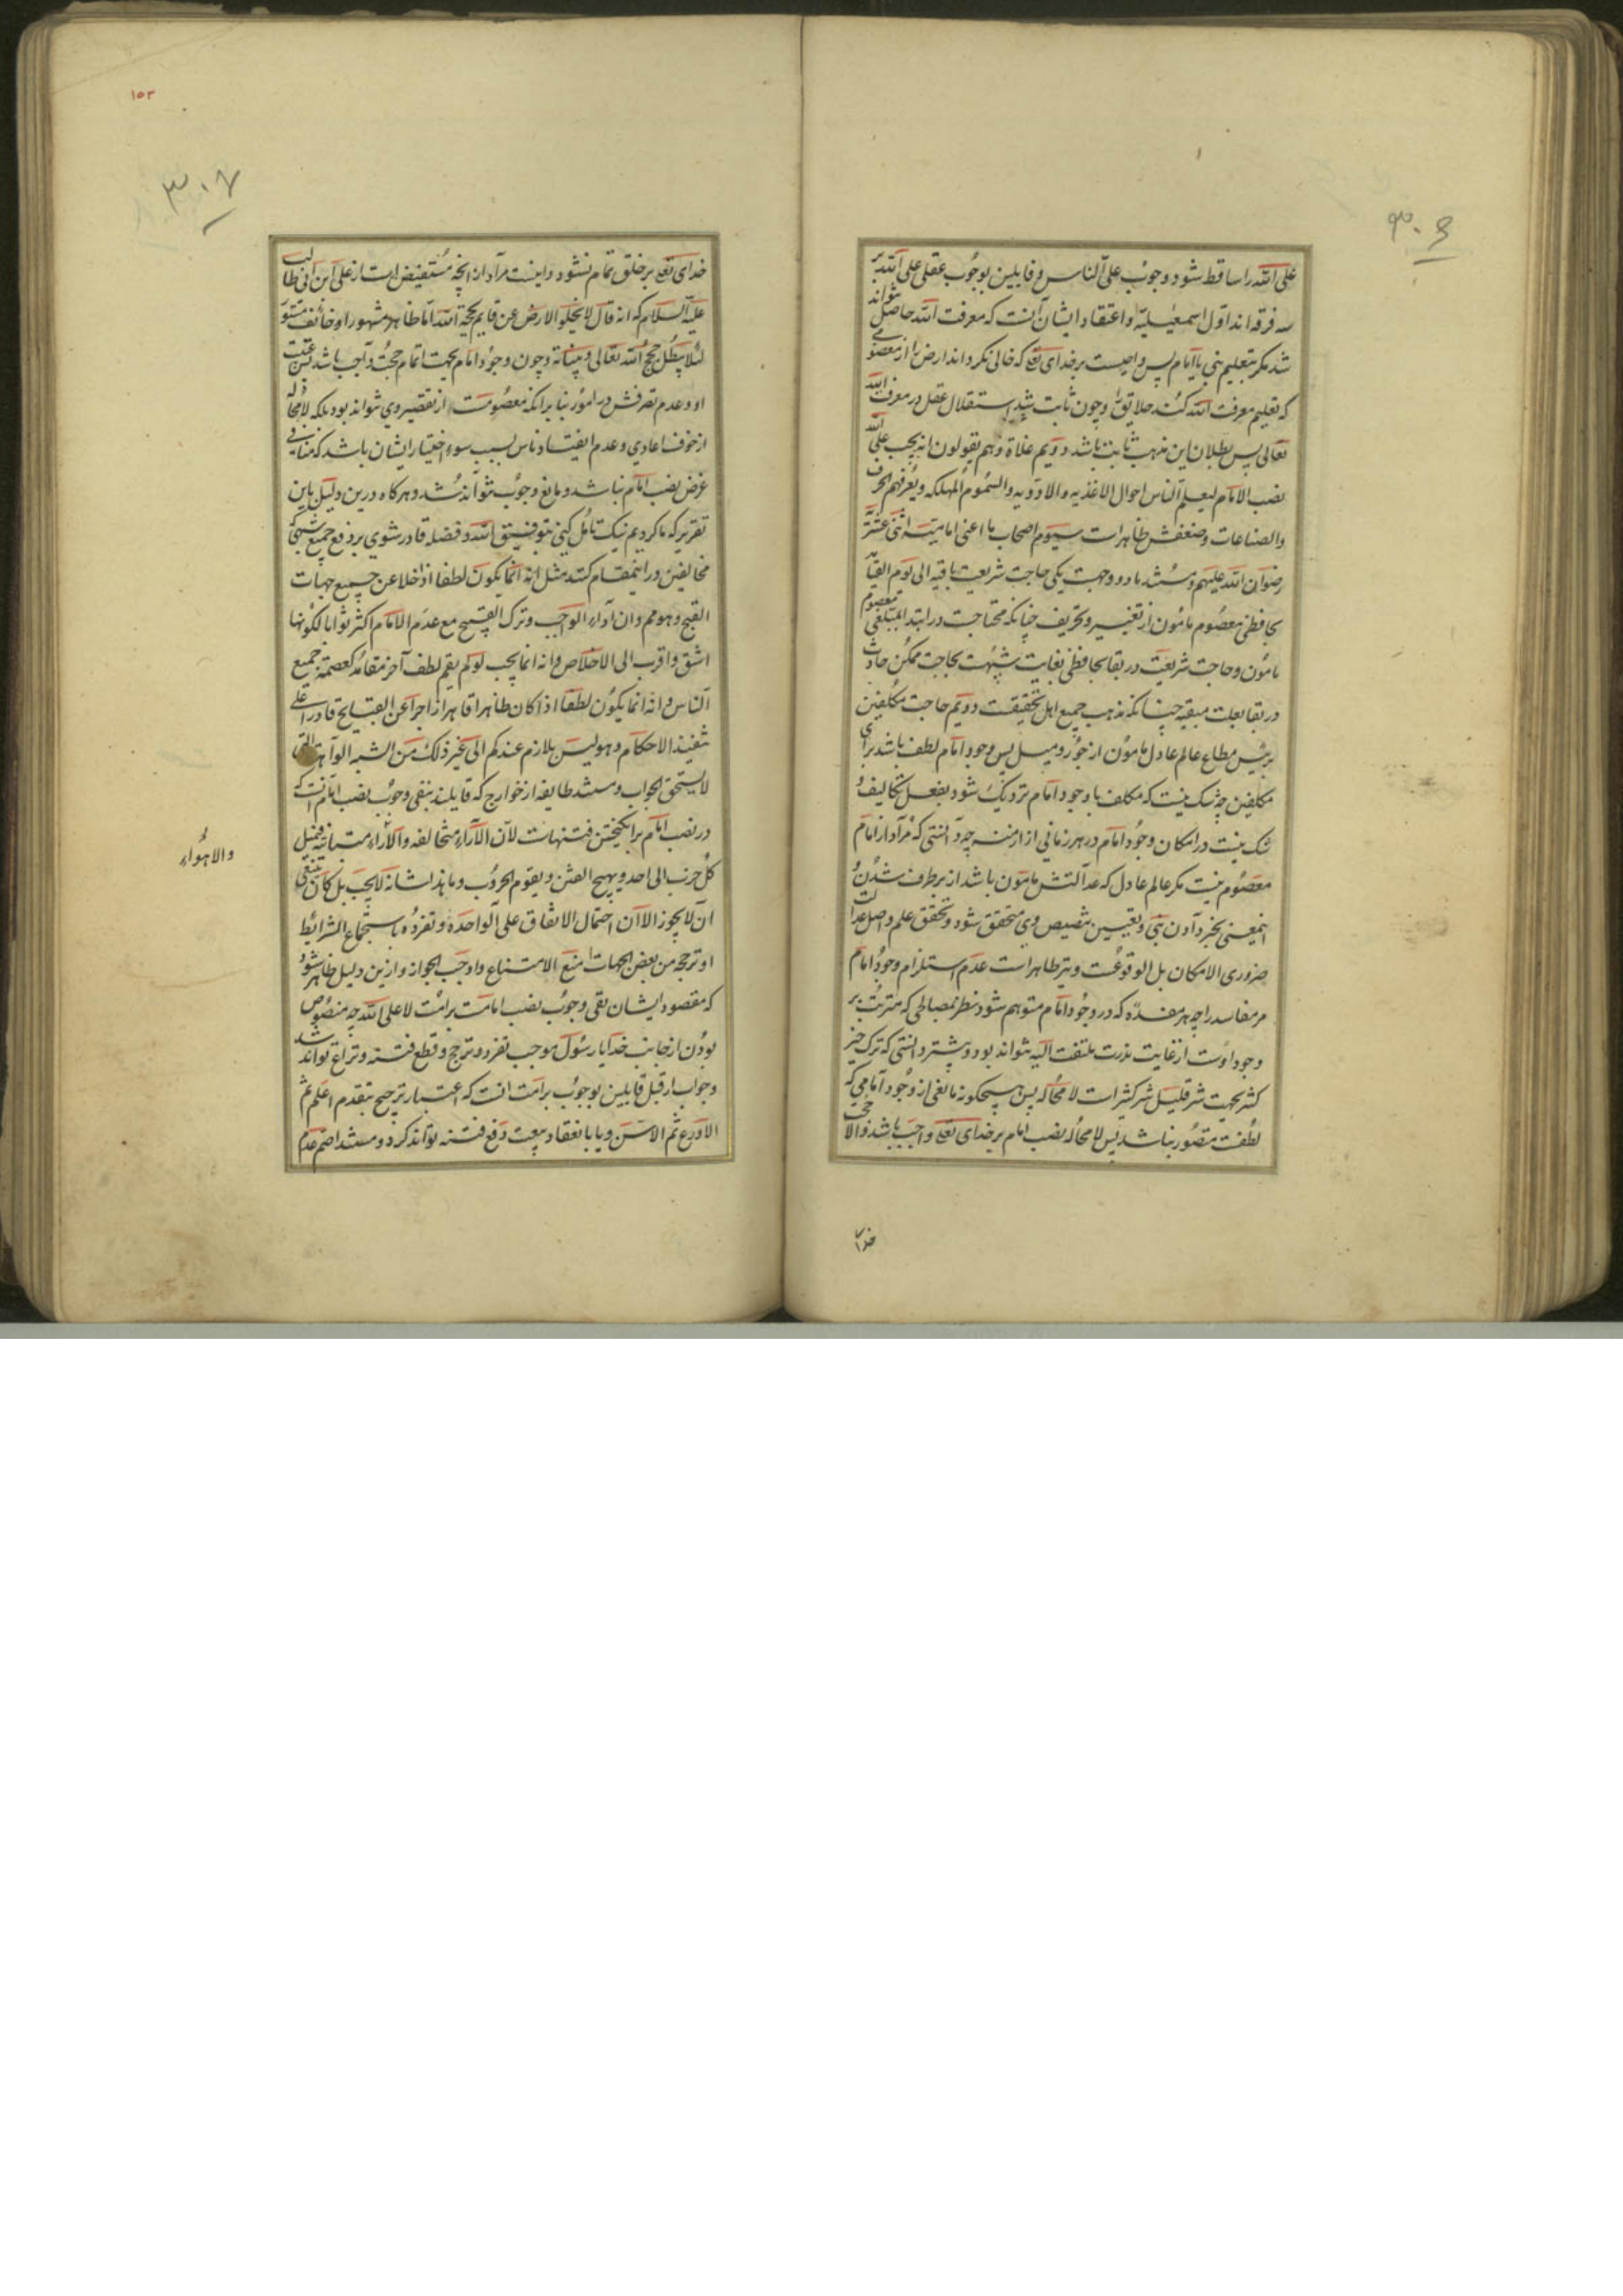 ۳۰۶
علی الله را ساقط شود وجوب علی الناس و قایلین بوجوب عقلی علی الله بر
سه فرقه اند اول اسمعیلیه و اعتقاد ایشان آنست که معرفت الله حاصل نتواند
شد مکر بتعلیم نبی یا امام پس واجبست بر خدای تع که خالی نکرداند ارض را از معصومی
که تعلیم معرفت الله کند خلایق را و چون ثابت شد استقلال عقل در معرفت الله
تعالی پس بطلان این مذهب ثابت باشد دویم غلاة و هم یقولون انه یجب علی الله
نصب الامام لیعلم الناس احوال الاغذیه والادویه والسموم المهلکه و یعرفهم الحرف
والصناعات و ضعفش ظاهر است سیوم اصحاب ما اعنی امامیه اثنی عشریه
رضوان الله علیهم و مستند ما دو وجهست یکی حاجت شریعت باقیه الی یوم القیامة
بحافظی معصوم مامون از تغییر و تحریف چنانکه محتاجست در ابتدا بمبلغی معصوم
مامون و حاجت شریعت در بقا بحافظی بغایت شبیهست بحاجت ممکن حادث
در بقا بعلت مبقیه چنانکه مذهب جمیع اهل تحقیقست دویم حاجت مکلفین
برئیس مطاع عالم عادل مامون از جور و میل پس وجود امام لطف باشد برای
مکلفین چه شک نیست که مکلف با وجود امام نزدیک شود بفعل تکالیف و
شک نیست در امکان وجود امام در هر زمانی از ازمنه چه دانستی که مراد از امام
معصوم نیست مکر عالم عادل که عدالتش مامون باشد از برطرف شدن و
اینمعنی بخبر دادن نبی و تعیین و تنصیص وی متحقق شود و تحقق علم و اصل عدالت
ضروری الامکان بل الوقوعست و نیز ظاهر است عدم استلزام وجود امام
مر مفاسد را چه هر مفسده که در وجود امام متوهم شود نظر بمصالحی که مترتب بر
وجود اوست از غایت ندرت ملتفت الیه نتواند بود و پیشتر دانستی که ترک خیر
کثیر بجهت شر قلیل شر کثیر است لا محاله پس هیچکونه مانعی از وجود امامی که
لطفست متصور نباشد پس لا محاله نصب امام بر خدای تع واجب باشد والا حجت
خدای
۱۵۳
۳۰۷
خدای تع بر خلق تمام نشود و اینست مراد از انچه مستفیض است از علی ابن ابی طالب
علیه السلام که انه قال لا یخلو الارض عن قایم بحجة الله اما ظاهر مشهور او خائف مستور
لئلا یبطل حجج الله تعالی و بیناته و چون وجود امام بجهت اتمام حجت واجب باشد پس غیبت
او و عدم تصرفش در امور بنا برانکه معصومست از تقصیر وی نتواند بود بلکه لا محاله
از خوف اعادی و عدم انقیاد ناس بسبب سوء اختیار ایشان باشد که منافی
غرض نصب امام نباشد و مانع وجوب نتواند شد و هرکاه درین دلیل باین
تقریر که ما کردیم نیک تامل کنی بتوفیق الله و فضله قادر شوی بر دفع جمیع شبهی که
مخالفین در اینمقام کنند مثل انه انما یکون لطفا اذا خلا عن جمیع جهات
القبح و هو مم و ان آداء الواجب و ترک القبیح مع عدم الامام اکثر ثوابا لکونها
اشق و اقرب الی الاخلاص و انه انما یجب لو لم یقم لطف آخر مقامه کعصمة جمیع
الناس و انه انما یکون لطفا اذا کان ظاهرا قاهرا زاجرا عن القبایح قادرا علی
تنفیذ الاحکام و هو لیس بلازم عندکم الی غیر ذلک من الشبه الواهیة التی
لا یستحق الجواب و مستند طایفه از خوارج که قایلند بنفی وجوب نصب امام آنست که
در نصب امام برانکیختن فتنهاست لان الآراء متخالفه والآراء متباینه فیمیل
والاهواء
کل حزب الی احد و یهیج الفتن و یقوم الحروب و ما هذا شانه لا یجب بل کان ینبغی
ان لا یجوز الا ان احتمال الاتفاق علی الواحد و تفرده باستجماع الشرایط
او ترجحه من بعض الجهات منع الامتناع و اوجب الجواز و ازین دلیل ظاهر شود
که مقصود ایشان نفی وجوب نصب امامست بر امت لا علی الله چه منصوص
بودن از جانب خدا یا رسول موجب تفرد و ترجح و قطع فتنه و نزاع تواند شد
و جواب از قبل قایلین بوجوب بر امت انست که اعتبار ترجیح بتقدم اعلم ثم
الاورع ثم الاسن و یا بانعقاد بیعت دفع فتنه تواند کرد و مستند اصم عدم